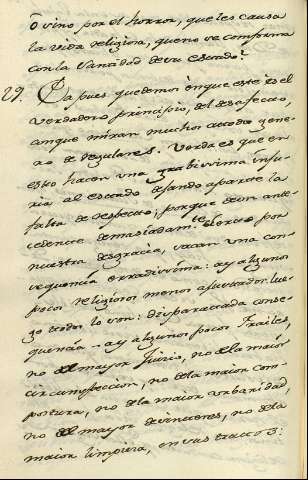 ò vino por el horror, que les causa
la vida religiosa, que no se conforma
con la Santidad de su estado?
29. Ea pues quedemos en que este es el
verdadero principio, del desafecto,
conque miran muchos a todo gene-
ro de Regulares. Verdad es que en
esto hacen una grabissima inju-
ria al estado dejando aparte la
falta de respecto; porque de un ante-
cedente demasiadam.te cierto por
nuestra desgracia, sacan una con-
sequencia erradissima: ay algunos
pocos religiosos menos ajustados: lue-
go todos lo son: disparatada conse-
quencia - ay algunos pocos Frailes,
no del mayor Juicio, no de la maior
circunspeccion, no de la maior com-
postura, no de la maior urbanidad,
no del mayor desinteres, no de la
maior limpieza, en sus tratos: